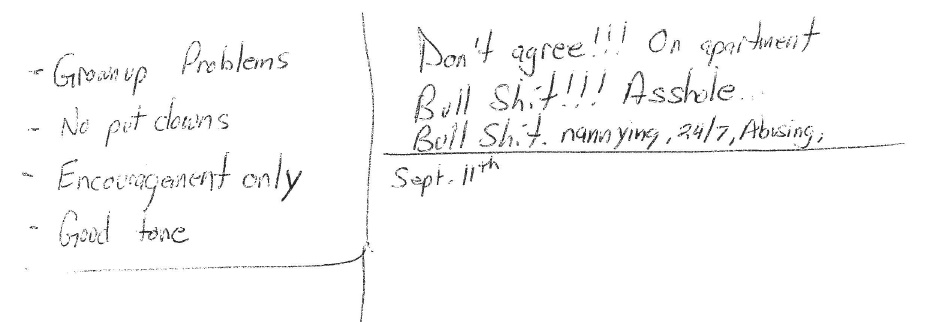 - Grownup Problems
- No put downs
- Encouragement only
- Good tone
Don't agree!!! On apartment
Bull Shit!!! Asshole...
Bull Shit. nannying, 24/7, Abusing,
Sept. 11th